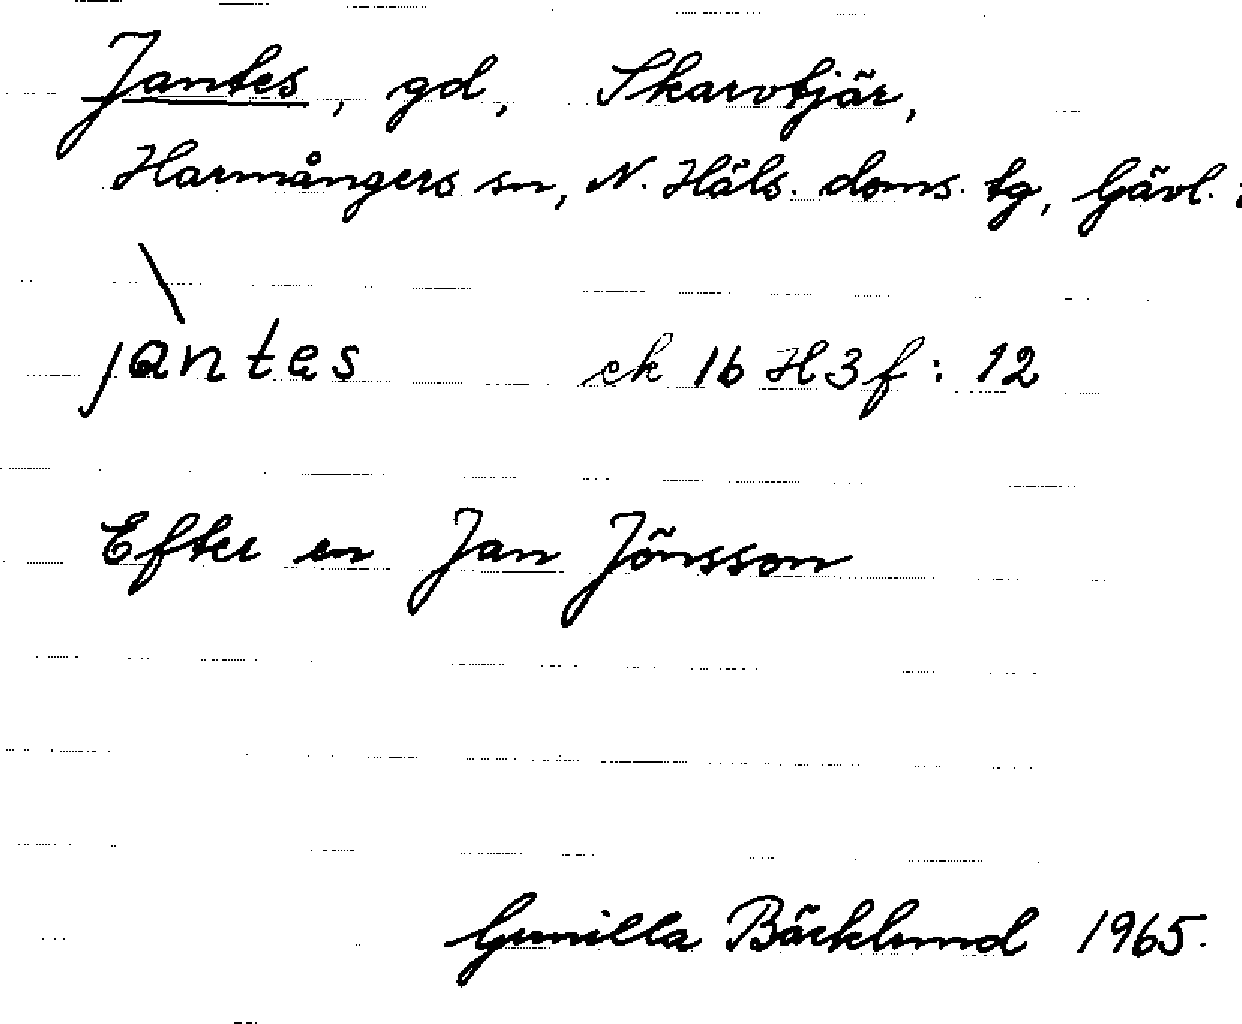 Jantes, gd, Skarvtjär,
Harmångers sn, N. Häls. doms. tg, Gävl. :
\
jantes ek 16 H 3 f : 12
Efter en Jan Jönsson
Gunilla Bäcklund 1965.